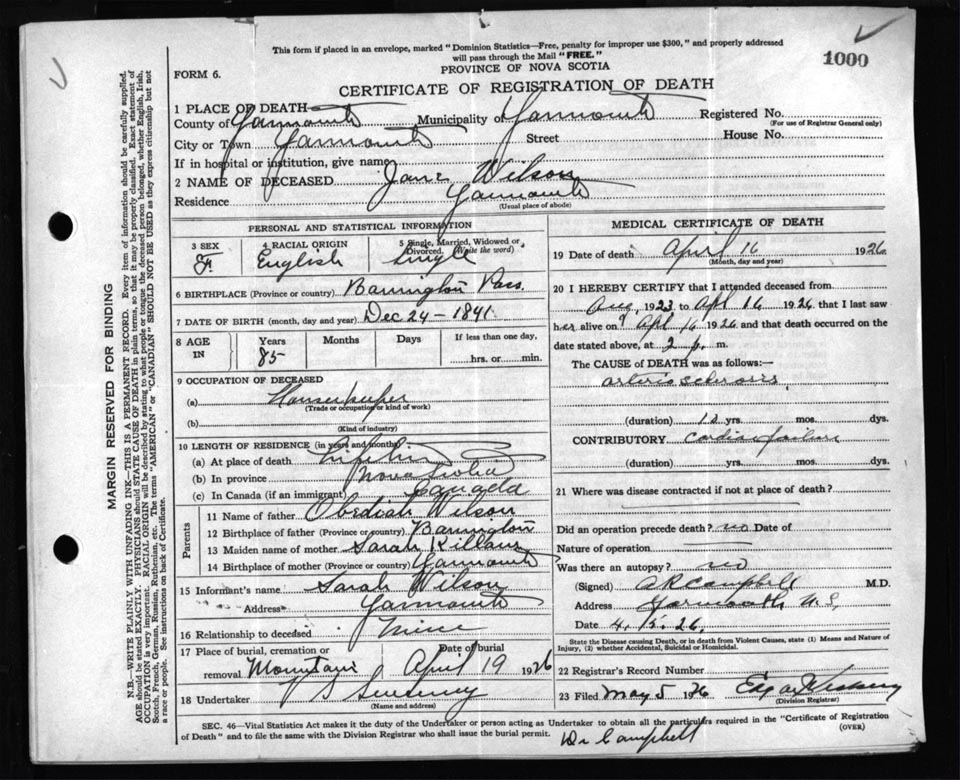 This form if placed in an envelope, marked "Dominion Statistics—Free, penalty for improper use $300," and properly addressed
will pass through the Mail "FREE."
1000
PROVINCE OF NOVA SCOTIA
FORM 6.
CERTIFICATE OF REGISTRATION OF DEATH
1 PLACE OF DEATH
County of Yarmouth Municipality of Yarmouth Registered No.
(For use of Registrar General only)
City or Town Yarmouth Street House No.
If in hospital or institution, give name
2 NAME OF DECEASED Jane Wilson
Residence Yarmouth
(Usual place of abode)
PERSONAL AND STATISTICAL INFORMATION
3 SEX F
4 RACIAL ORIGIN English
5 Single, Married, Widowed or Divorced. (Write the word) Single
6 BIRTHPLACE (Province or country) Barrington Pass.
7 DATE OF BIRTH (month, day and year) Dec 24 – 1841
8 AGE IN Years 85 Months Days If less than one day,
hrs. or min.
9 OCCUPATION OF DECEASED
(a) Housekeeper
(Trade or occupation or kind of work)
(b)
(Kind of industry)
10 LENGTH OF RESIDENCE (in years and months)
(a) At place of death
(b) In province Nova Scotia
(c) In Canada (if an immigrant) Canada
Parents
11 Name of father Obediah Wilson
12 Birthplace of father (Province or country) Barrington
13 Maiden name of mother Sarah
14 Birthplace of mother (Province or country) Yarmouth
15 Informant's name Sarah Wilson
Address Yarmouth
16 Relationship to deceased
17 Place of burial, cremation or removal Mountain Date of burial April 19 1926
18 Undertaker V S Sweeney
(Name and address)
MEDICAL CERTIFICATE OF DEATH
19 Date of death April 16 1926
(Month, day and year)
20 I HEREBY CERTIFY that I attended deceased from
Aug, 1923 to Apl 16 1926, that I last saw
her alive on Apl 16 1926 and that death occurred on
date stated above, at 2 p. m.
The CAUSE OF DEATH was as follows:—
arterio sclerosis
(duration) 12 yrs. mos. dys.
CONTRIBUTORY cardiac failure
(duration) yrs. mos. dys.
21 Where was disease contracted if not at place of death?
Did an operation precede death? no Date of
Nature of operation
Was there an autopsy? no
(Signed) A R Campbell M.D.
Address Yarmouth N.S.
Date 4. 15. 26.
State the Disease causing Death, or in death from Violent Causes, state (1) Means and Nature of
Injury, (2) whether Accidental, Suicidal or Homicidal.
22 Registrar's Record Number
23 Filed May 5 1926
(Division Registrar)
SEC. 46—Vital Statistics Act makes it the duty of the Undertaker or person acting as Undertaker to obtain all the particulars required in the "Certificate of Registration
of Death" and to file the same with the Division Registrar who shall issue the burial permit.
(OVER)
Dr Campbell
MARGIN RESERVED FOR BINDING
N.B.—WRITE PLAINLY WITH UNFADING INK—THIS IS A PERMANENT RECORD. Every item of information should be carefully supplied.
AGE should be stated EXACTLY. PHYSICIANS should STATE CAUSE OF DEATH in plain terms, so that it may be properly classified. Exact statement of
OCCUPATION is very important. RACIAL ORIGIN will be described by stating to what people or tongue the deceased person belonged, whether English, Irish,
Scotch, French, German, Russian, Ruthenian, etc. The terms "AMERICAN" or "CANADIAN" SHOULD NOT BE USED as they express citizenship but not
a race or people. See instructions on back of Certificate.